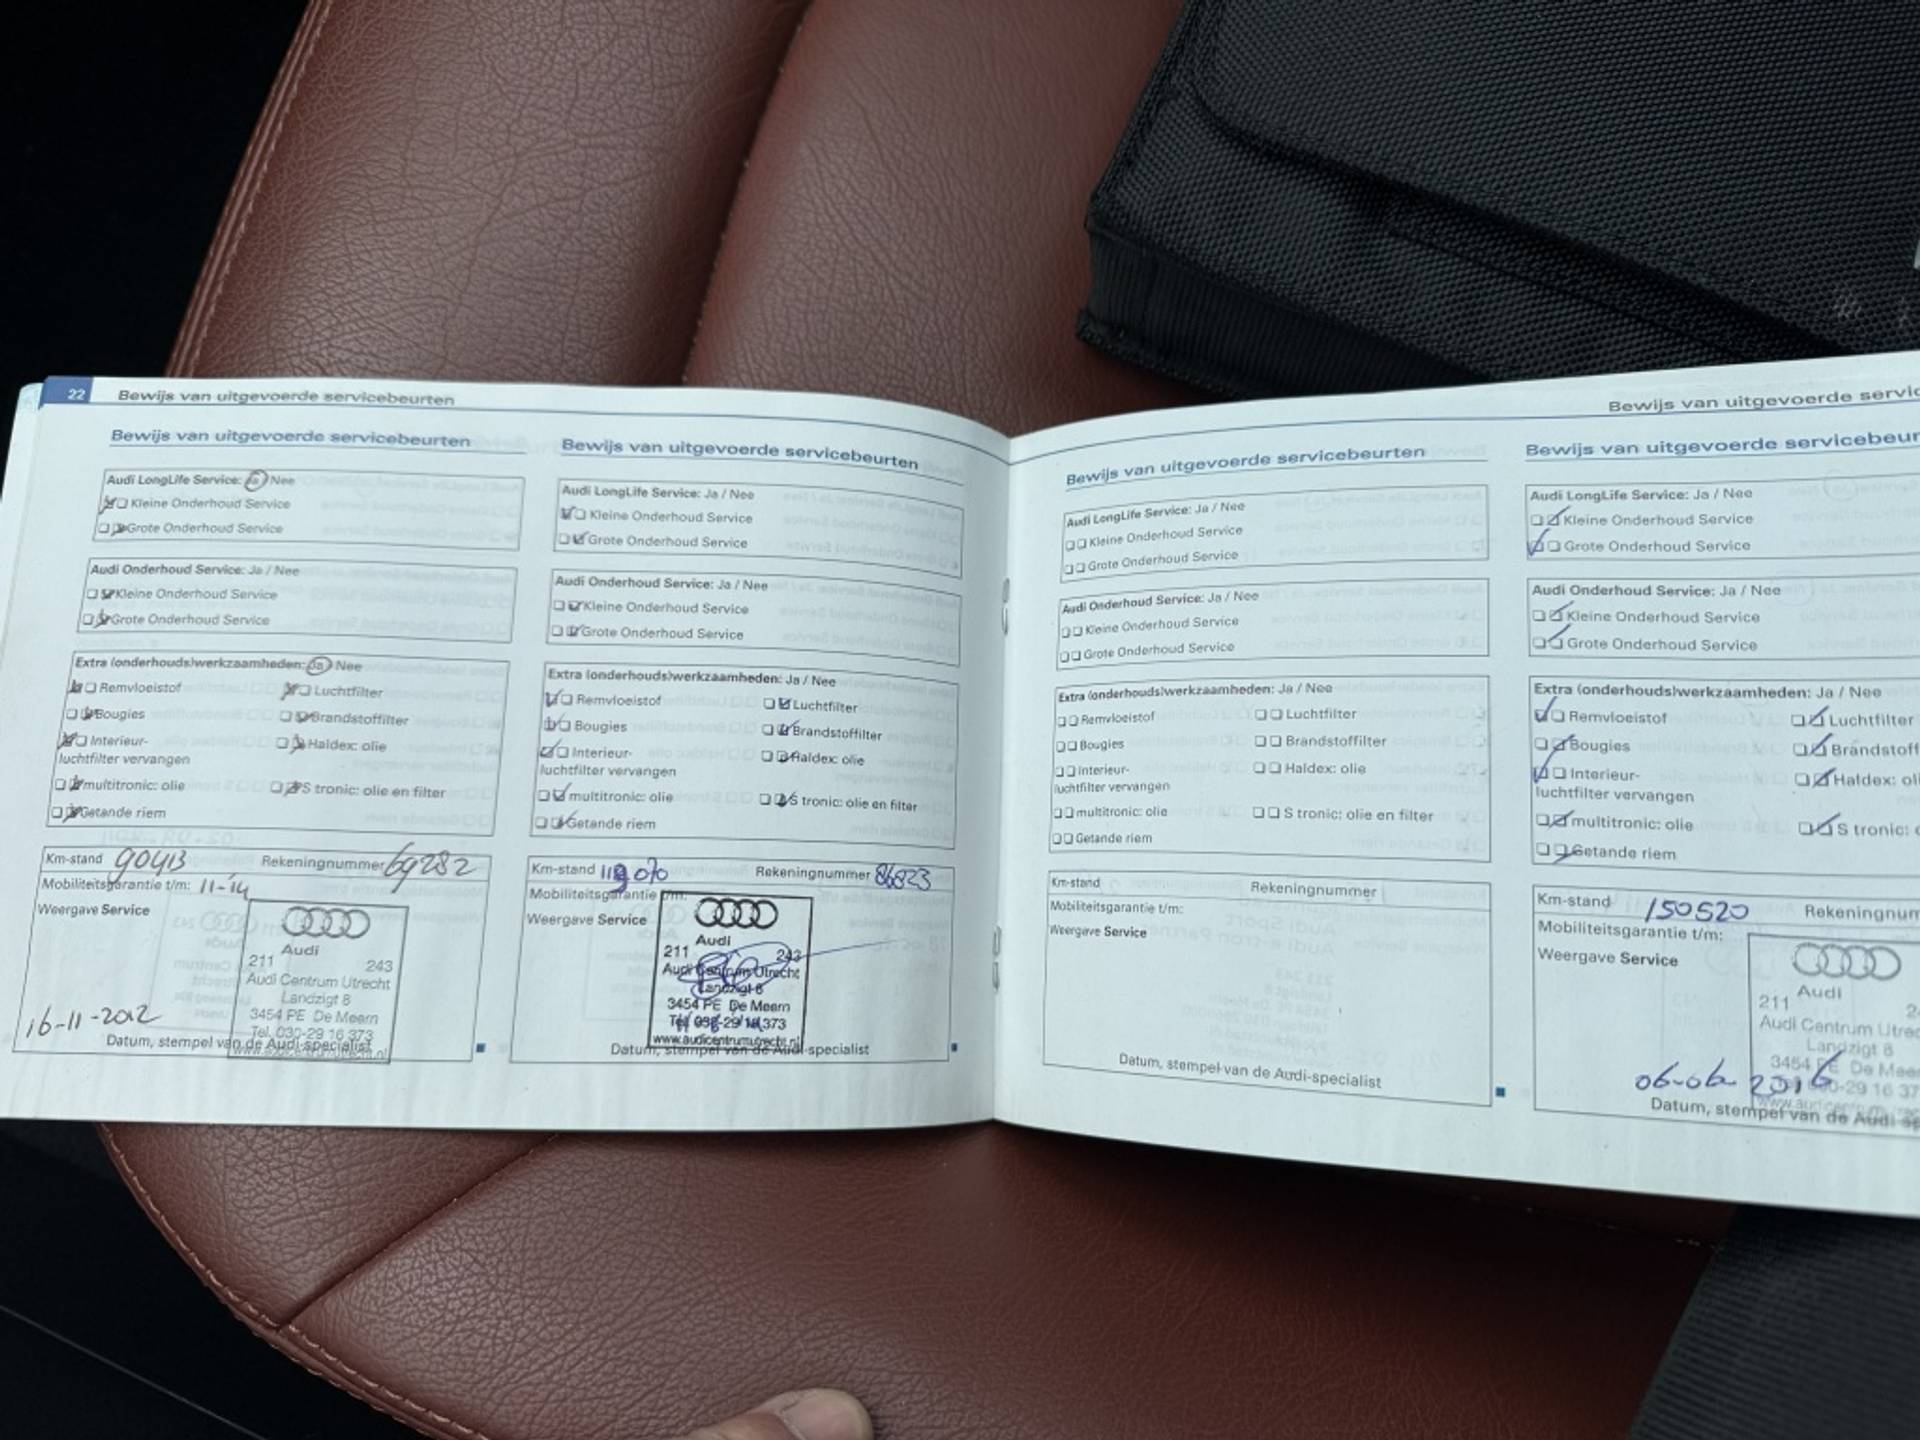 22 Bewijs van uitgevoerde servicebeurten
Bewijs van uitgevoerde servicebeurten
Audi LongLife Service: Ja / Nee
Kleine Onderhoud Service
Grote Onderhoud Service
Audi Onderhoud Service: Ja / Nee
Kleine Onderhoud Service
Grote Onderhoud Service
Extra (onderhouds)werkzaamheden: Ja / Nee
Remvloeistof Luchtfilter
Bougies Brandstoffilter
Interieur- Haldex: olie
luchtfilter vervangen
multitronic: olie S tronic: olie en filter
Getande riem
Km-stand 90413 Rekeningnummer 69282
Mobiliteitsgarantie t/m: 11-14
Weergave Service
Audi
211 243
Audi Centrum Utrecht
Landzigt 8
3454 PE De Meern
Tel. 030-29 16 373
www.audicentrumutrecht.nl
16-11-2012
Datum, stempel van de Audi-specialist
Bewijs van uitgevoerde servicebeurten
Audi LongLife Service: Ja / Nee
Kleine Onderhoud Service
Grote Onderhoud Service
Audi Onderhoud Service: Ja / Nee
Kleine Onderhoud Service
Grote Onderhoud Service
Extra (onderhouds)werkzaamheden: Ja / Nee
Remvloeistof Luchtfilter
Bougies Brandstoffilter
Interieur- Haldex: olie
luchtfilter vervangen
multitronic: olie S tronic: olie en filter
Getande riem
Km-stand Rekeningnummer 86823
Mobiliteitsgarantie t/m:
Weergave Service
Audi
211 243
Audi Centrum Utrecht
Landzigt 8
3454 PE De Meern
Tel. 030-29 16 373
www.audicentrumutrecht.nl
Datum, stempel van de Audi-specialist
Bewijs van uitgevoerde servic
Bewijs van uitgevoerde servicebeurten
Audi LongLife Service: Ja / Nee
Kleine Onderhoud Service
Grote Onderhoud Service
Audi Onderhoud Service: Ja / Nee
Kleine Onderhoud Service
Grote Onderhoud Service
Extra (onderhouds)werkzaamheden: Ja / Nee
Remvloeistof Luchtfilter
Bougies Brandstoffilter
Interieur- Haldex: olie
luchtfilter vervangen
multitronic: olie S tronic: olie en filter
Getande riem
Km-stand Rekeningnummer
Mobiliteitsgarantie t/m:
Weergave Service
Datum, stempel van de Audi-specialist
Bewijs van uitgevoerde servicebeur
Audi LongLife Service: Ja / Nee
Kleine Onderhoud Service
Grote Onderhoud Service
Audi Onderhoud Service: Ja / Nee
Kleine Onderhoud Service
Grote Onderhoud Service
Extra (onderhouds)werkzaamheden: Ja / Nee
Remvloeistof Luchtfilter
Bougies Brandstoff
Interieur- Haldex: oli
luchtfilter vervangen
multitronic: olie S tronic:
Getande riem
Km-stand 150520 Rekeningnum
Mobiliteitsgarantie t/m:
Weergave Service
Audi
211 2
Audi Centrum Utrec
Landzigt 8
3454 PE De Meer
06-06-2016
Datum, stempel van de Audi-sp